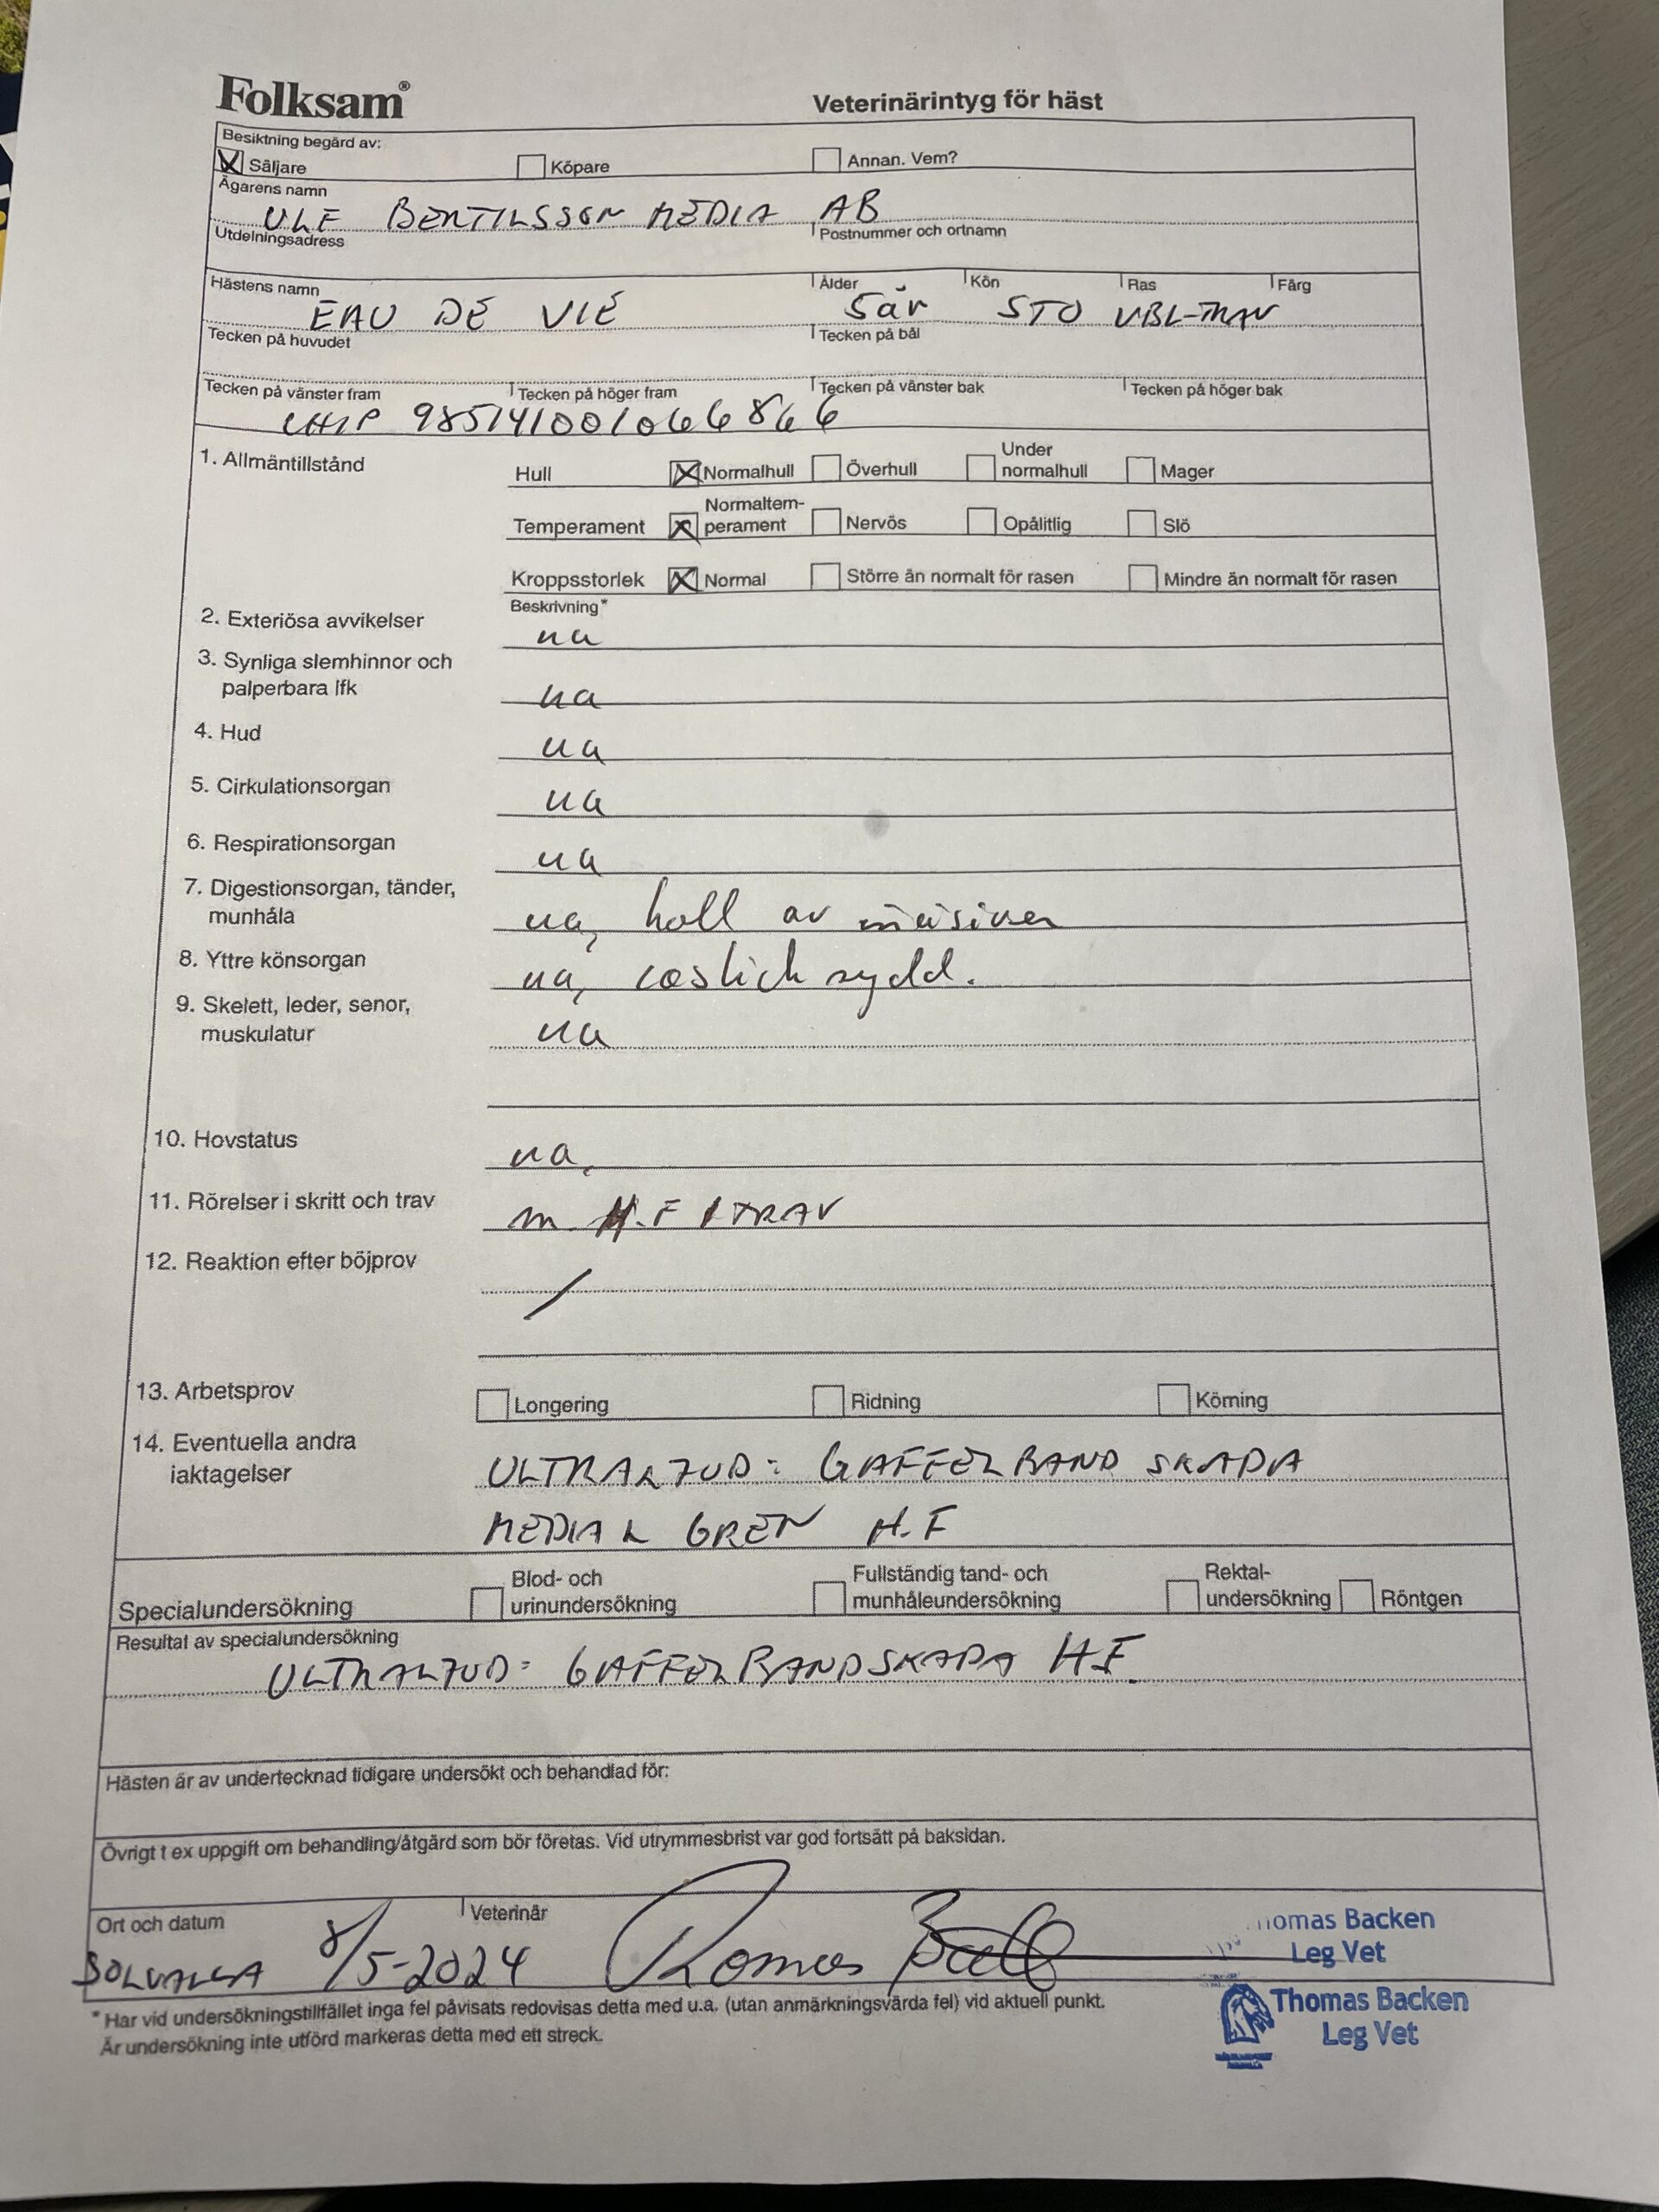 Folksam®
Veterinärintyg för häst
Besiktning begärd av:
Säljare Köpare Annan. Vem?
Ägarens namn
ULF BERTILSSON MEDIA AB
Utdelningsadress Postnummer och ortnamn
Hästens namn Ålder Kön Ras Färg
EAU DE VIE 5år STO VBL-TRAV
Tecken på huvudet Tecken på bål
Tecken på vänster fram Tecken på höger fram Tecken på vänster bak Tecken på höger bak
CHIP 985141001066866
1. Allmäntillstånd Hull Normalhull Överhull Under normalhull Mager
Temperament Normaltem-perament Nervös Opålitlig Slö
Kroppsstorlek Normal Större än normalt för rasen Mindre än normalt för rasen
Beskrivning*
2. Exteriösa avvikelser ua
3. Synliga slemhinnor och
palperbara lfk ua
4. Hud ua
5. Cirkulationsorgan ua
6. Respirationsorgan ua
7. Digestionsorgan, tänder,
munhåla ua, koll av
8. Yttre könsorgan ua, sydd.
9. Skelett, leder, senor,
muskulatur ua
10. Hovstatus ua.
11. Rörelser i skritt och trav H.F I TRAV
12. Reaktion efter böjprov /
13. Arbetsprov Longering Ridning Körning
14. Eventuella andra
iaktagelser ULTRALJUD: GAFFELBAND SKADA
MEDIAL GREN H.F
Specialundersökning Blod- och urinundersökning Fullständig tand- och munhåleundersökning Rektal-undersökning Röntgen
Resultat av specialundersökning
ULTRALJUD: GAFFELBANDSKADA HF.
Hästen är av undertecknad tidigare undersökt och behandlad för:
Övrigt t ex uppgift om behandling/åtgärd som bör företas. Vid utrymmesbrist var god fortsätt på baksidan.
Ort och datum Veterinär
SOLVALLA 8/5-2024 Thomas Backen
Leg Vet
* Har vid undersökningstillfället inga fel påvisats redovisas detta med u.a. (utan anmärkningsvärda fel) vid aktuell punkt.
Är undersökning inte utförd markeras detta med ett streck.
Thomas Backen
Leg Vet